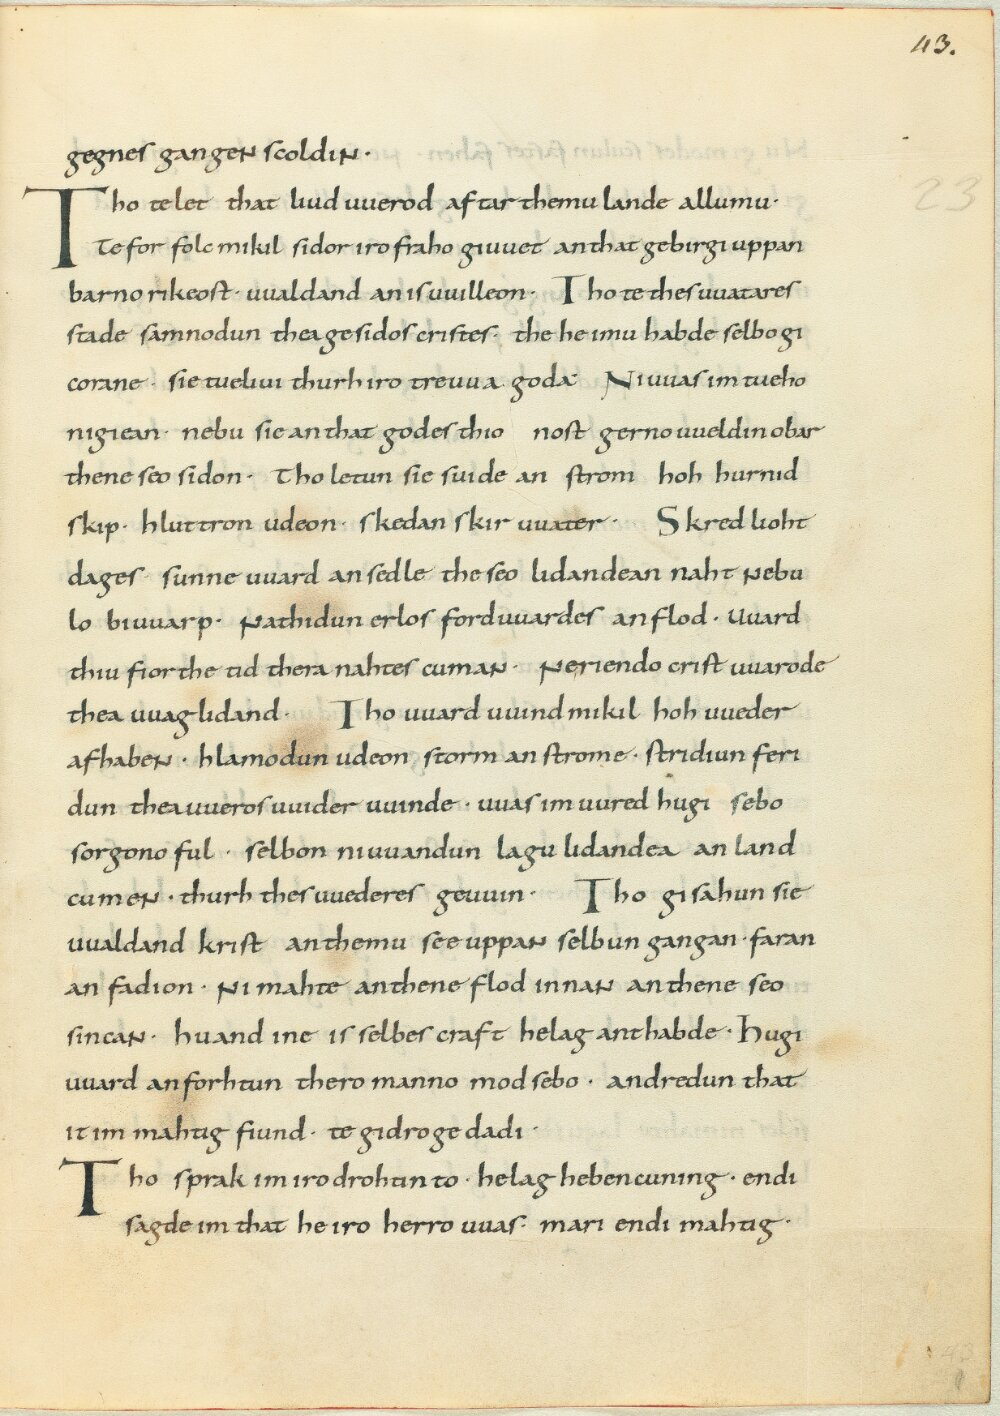 43.
23
gegnes gangen scoldin·
Tho telet that liud uuerod aftar themu lande allumu·
Tefor folc mikil sidor iro fraho giuuet an that gebirgi uppan
barno rikeost· uualdand an is uuilleon· Tho te thes uuatares
stade samnodun thea gesidos cristes· the he imu habde selbo gi
corane· sie tuelivi thurh iro treuua goda· Ni uuas im tueho
nigiean· nebu sie an that godes thionost gerno uueldin obar
thene seo sidon· Tho letun sie suide an strom hoh hurnid
skip· hluttron udeon· skedan skir uuater· Skred lioht
dages· sunne uuard an sedle the seo lidandean naht nebu
lo biuuarp· nathidun erlos forduuardes an flod· Uuard
thiu fiorthe tid thera nahtes cuman· neriendo crist uuarode
thea uuaglidand· Tho uuard uuind mikil hoh uueder
afhaben· hlamodun udeon storm an strome· stridiun feri
dun thea uueros uuider uuinde· uuas im uured hugi sebo
sorgono ful· selbon niuuandun lagu lidandea an land
cumen· thurh thes uuederes geuuin· Tho gisahun sie
uualdand krist an themu see uppan selbun gangan· faran
an fadion· ni mahte an thene flod innan an thene seo
sincan· huand ine is selbes craft helag anthabde· hugi
uuard an forhtun thero manno modsebo· andredun that
it im mahtig fiund· te gidroge dadi·
Tho sprak im iro drohtin to· helag hebencuning· endi
sagde im that he iro herro uuas· mari endi mahtig·